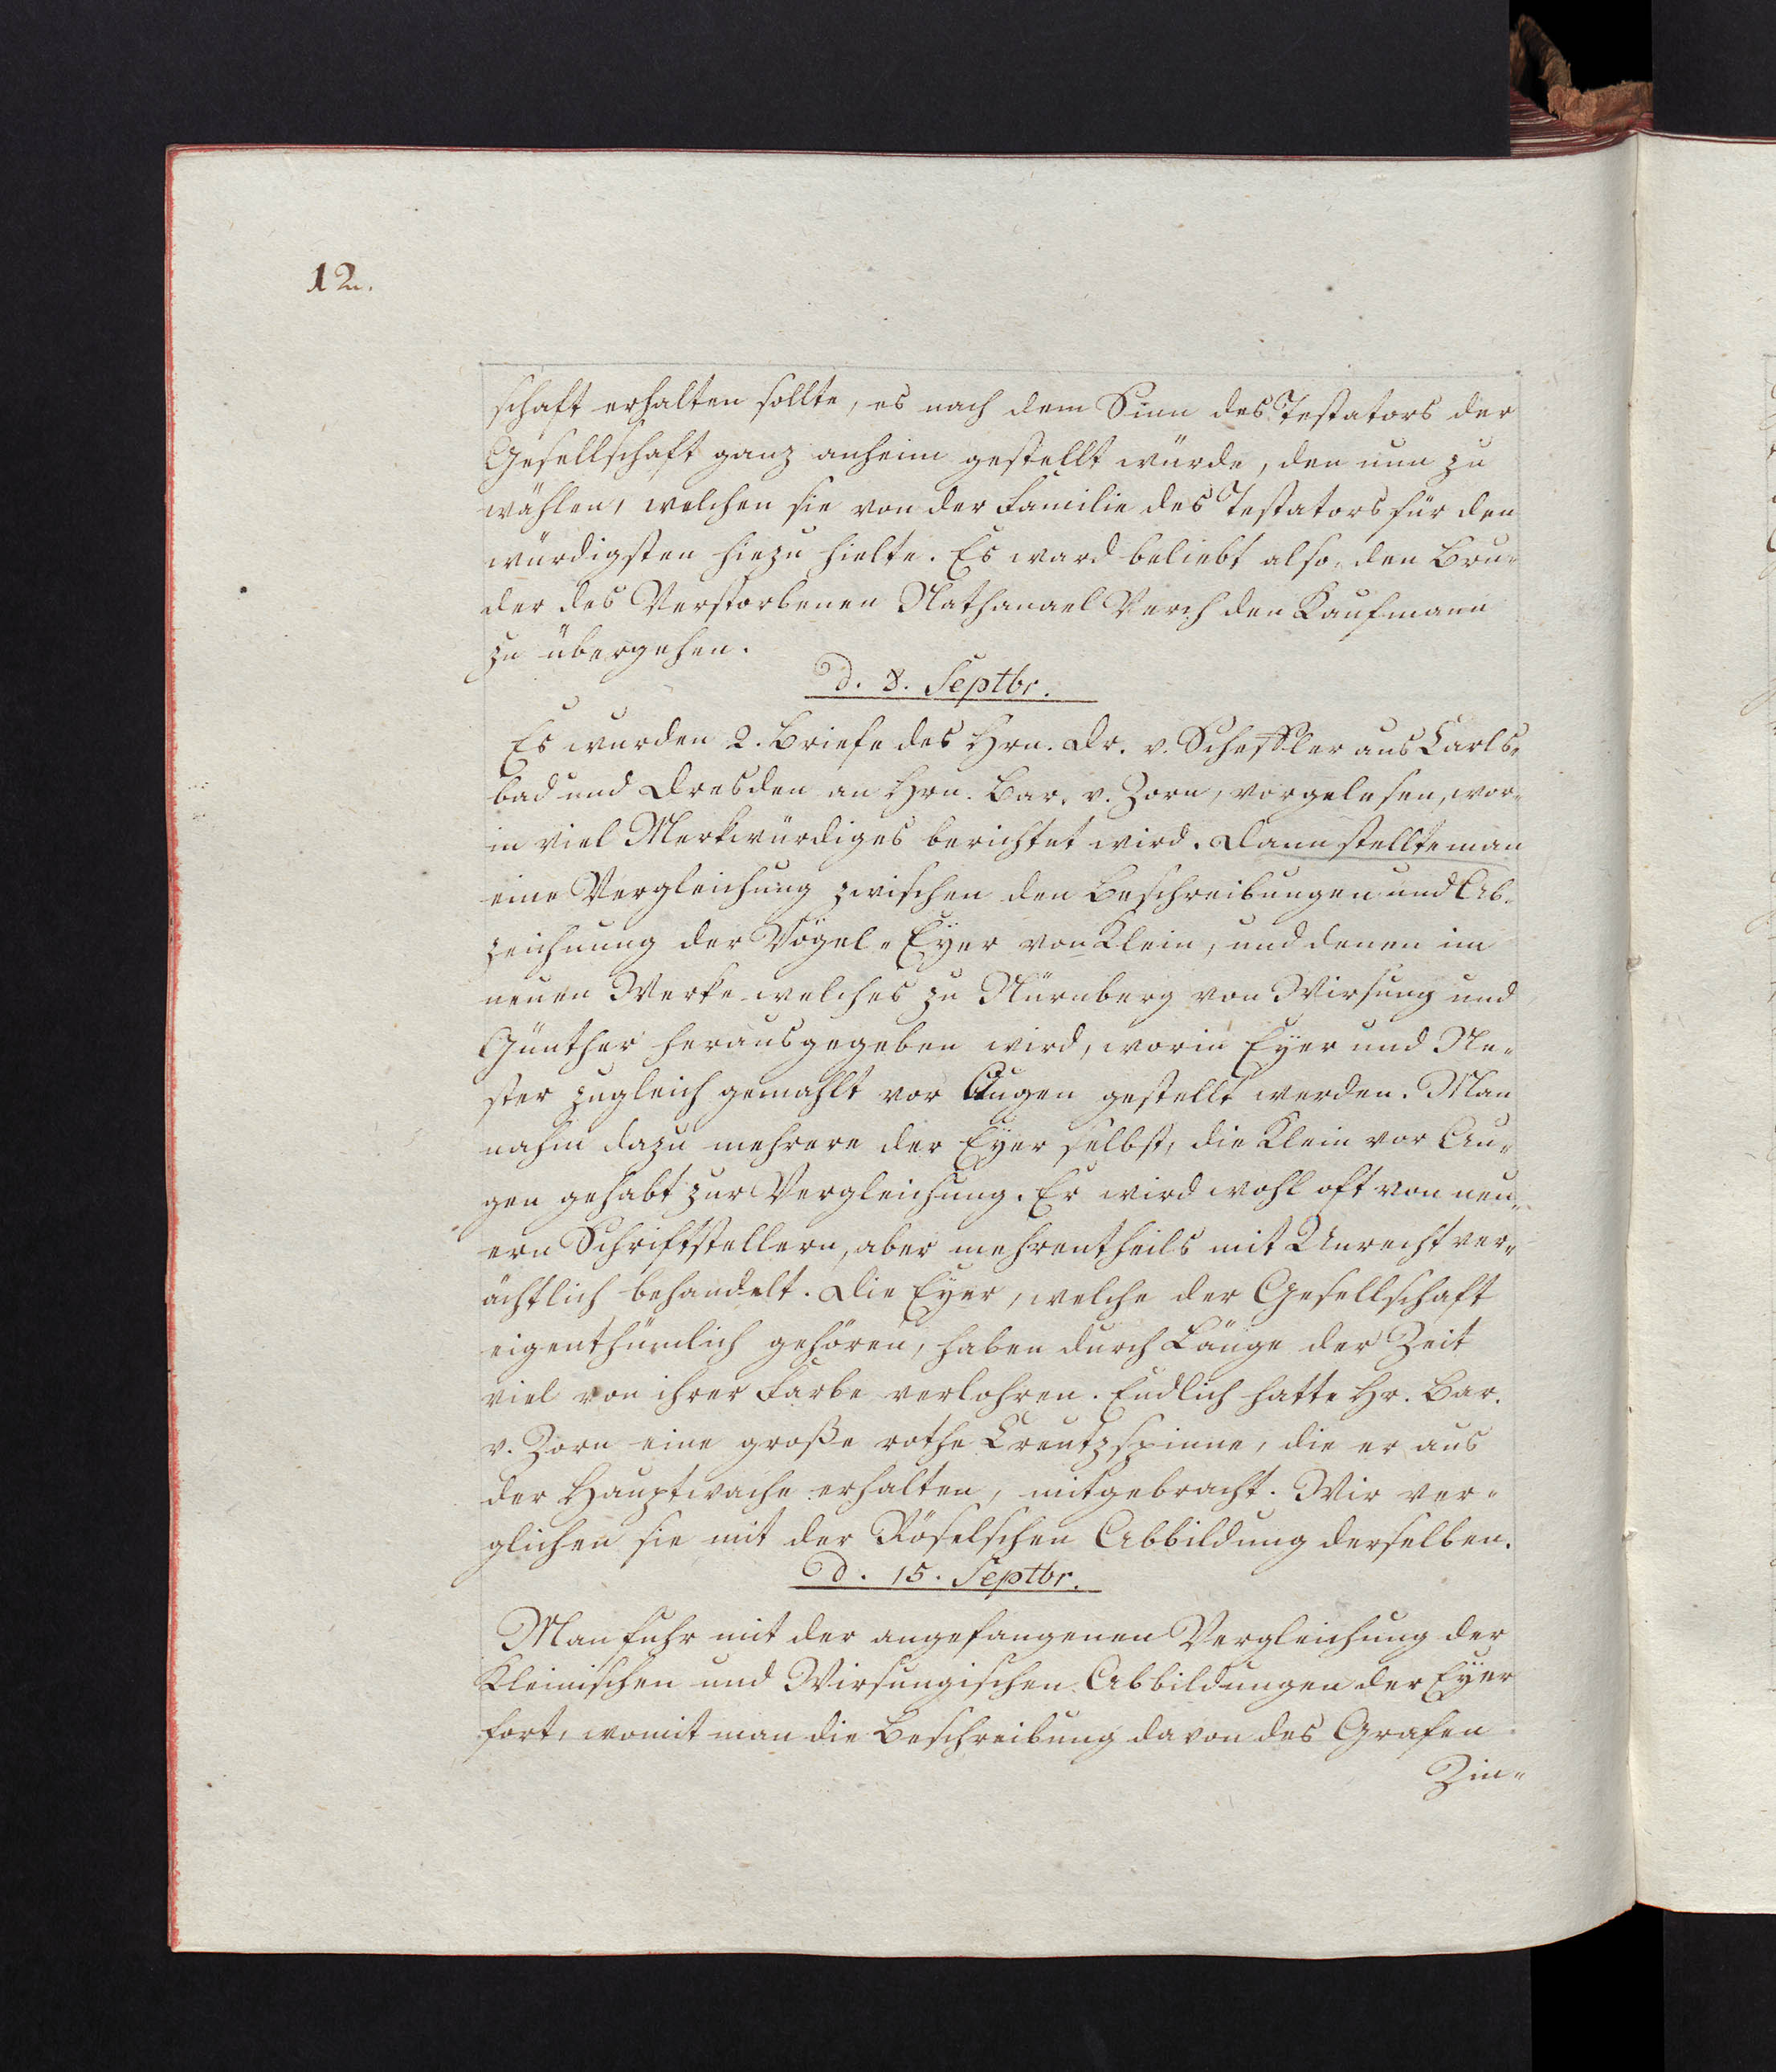 12.
schaft erhalten sollte, es nach dem Sinn des Testators der
Gesellschaft ganz anheim gestellt würde, den nun zu
wählen, welchen sie von der Familie des Testators für den
würdigsten hiezu hielte. Es ward beliebt also, den Bru-
der des Verstorbenen Nathanael Verch den Kaufmann
zu übergehen.
d. 8. Septbr.
Es wurden 2. Briefe des Hrn. Dr. v. Scheffler aus Carls-
bad und Dresden an Hrn. Bar. v. Zorn, vorgelesen, wor-
in viel Merkwürdiges berichtet wird. Dann stellte man
eine Vergleichung zwischen den Beschreibungen und Ab-
zeichnung der Vögel-Eyer von Klein, und denen im
neuen Werke welches zu Nürnberg von Wirsung und
Günther herausgegeben wird, worin Eyer und Ne-
ster zugleich gemahlt vor Augen gestellt werden. Man
nahm dazu mehrere der Eyer selbst, die Klein vor Au-
gen gehabt zur Vergleichung. Er wird wohl oft von neu-
ern Schriftstellern, aber mehrentheils mit Unrecht ver-
ächtlich behandelt. Die Eyer, welche der Gesellschaft
eigenthümlich gehören, haben durch Länge der Zeit
viel von ihrer Farbe verlohren. Endlich hatte Hr. Bar.
v. Zorn eine große rothe Creutzspinne, die er aus
der Hauptwache erhalten, mitgebracht. Wir ver-
glichen sie mit der Röselschen Abbildung derselben.
d. 15. Septbr.
Man fuhr mit der angefangenen Vergleichung der
Kleinischen und Wirsungischen Abbildungen der Eyer
fort, womit man die Beschreibung davon des Grafen
Zin-